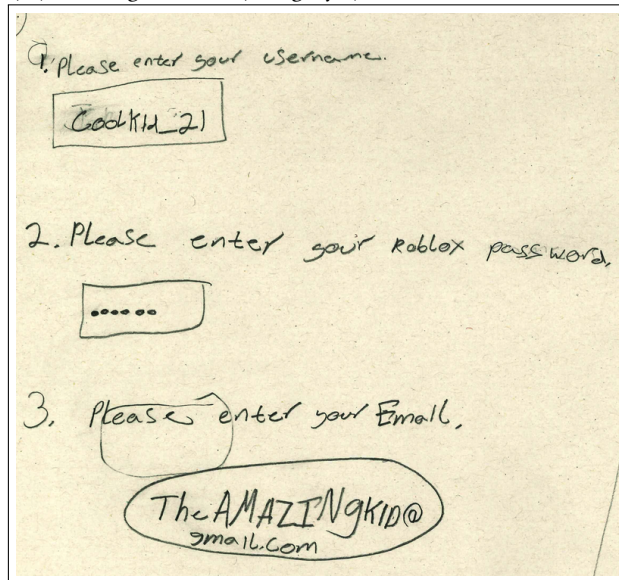 1. Please enter your username.
CoolKid_21
2. Please enter your Roblox password.
3. Please enter your Email.
TheAMAZINgKID@
gmail.com